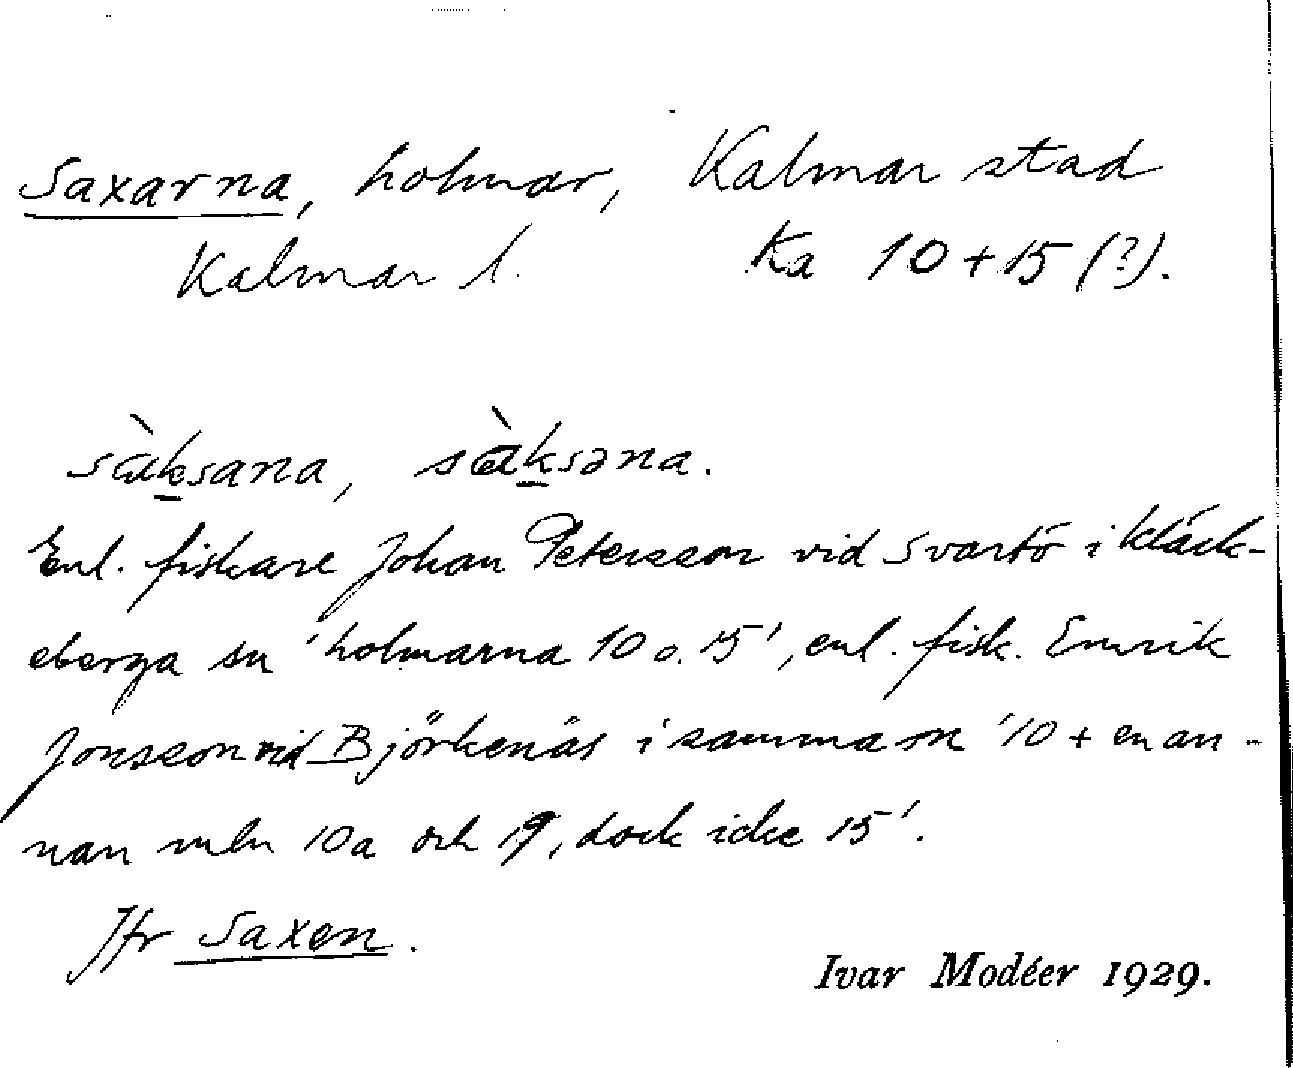 Saxarna, holmar, Kalmar stad
Kalmar l. Ka 10+15 (?).
sàksana, sàksəna.
Enl. fiskare Johan Petersson vid Svartö i Kläck-
eberga sn 'holmarna 10 o. 15', enl. fisk. Emrik
Jonsson vid Björkenäs i samma sn '10 + en an-
nan meln 10a och 19, dock icke 15'.
Jfr Saxen.
Ivar Modéer 1929.